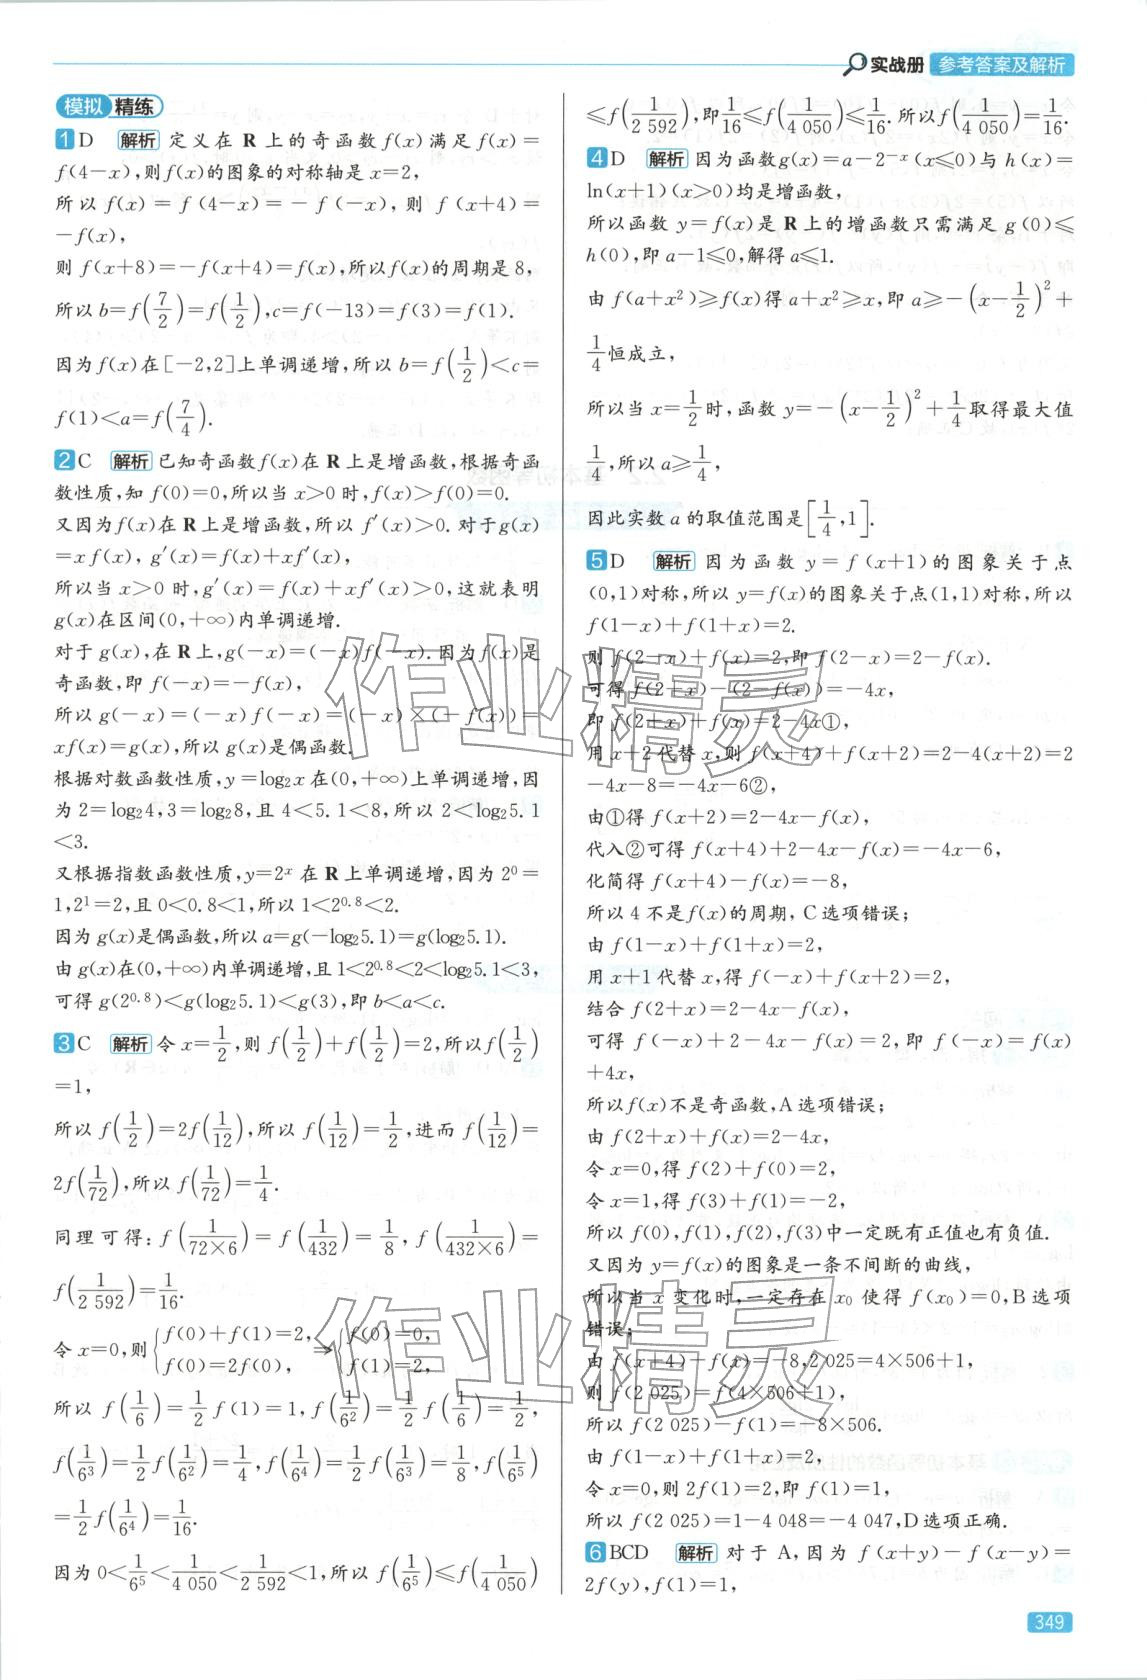 实战册 参考答案及解析
模拟 精练
1 D 解析 定义在 R 上的奇函数 f(x) 满足 f(x)=
f(4-x),则f(x)的图象的对称轴是x=2,
所以 f(x)=f(4-x)=-f(-x),则 f(x+4)=
-f(x),
则 f(x+8)=-f(x+4)=f(x),所以f(x)的周期是8,
所以b=f(7/2)=f(1/2),c=f(-13)=f(3)=f(1).
因为f(x)在[-2,2]上单调递增,所以 b=f(1/2)<c=
f(1)<a=f(7/4).
2 C 解析 已知奇函数f(x)在 R 上是增函数,根据奇函
数性质,知 f(0)=0,所以当 x>0 时,f(x)>f(0)=0.
又因为f(x)在 R 上是增函数,所以 f′(x)>0. 对于g(x)
=xf(x), g′(x)=f(x)+xf′(x),
所以当 x>0 时,g′(x)=f(x)+xf′(x)>0,这就表明
g(x)在区间(0,+∞)内单调递增.
对于 g(x),在 R 上,g(-x)=(-x)f(-x). 因为f(x)是
奇函数,即 f(-x)=-f(x),
所以 g(-x)=(-x)f(-x)=(-x)×(-f(x))=
xf(x)=g(x),所以g(x)是偶函数.
根据对数函数性质,y=log₂x 在(0,+∞)上单调递增,因
为 2=log₂4,3=log₂8,且 4<5.1<8,所以 2<log₂5.1
<3.
又根据指数函数性质,y=2ˣ 在 R 上单调递增,因为 2⁰=
1,2¹=2,且 0<0.8<1,所以 1<2^0.8<2.
因为 g(x)是偶函数,所以a=g(-log₂5.1)=g(log₂5.1).
由 g(x)在(0,+∞)内单调递增,且1<2^0.8<2<log₂5.1<3,
可得g(2^0.8)<g(log₂5.1)<g(3),即 b<a<c.
3 C 解析 令 x=1/2,则 f(1/2)+f(1/2)=2,所以f(1/2)
=1,
所以 f(1/2)=2f(1/12),所以 f(1/12)=1/2,进而 f(1/12)=
2f(1/72),所以 f(1/72)=1/4.
同理可得: f(1/(72×6))=f(1/432)=1/8, f(1/(432×6))=
f(1/2 592)=1/16.
令 x=0,则{f(0)+f(1)=2, f(0)=2f(0), ⇒{f(0)=0, f(1)=2,
所以 f(1/6)=1/2 f(1)=1, f(1/6²)=1/2 f(1/6)=1/2,
f(1/6³)=1/2 f(1/6²)=1/4, f(1/6⁴)=1/2 f(1/6³)=1/8, f(1/6⁵)
=1/2 f(1/6⁴)=1/16.
因为 0<1/6⁵<1/4 050<1/2 592<1,所以 f(1/6⁵)≤f(1/4 050)
≤f(1/2 592),即1/16≤f(1/4 050)≤1/16. 所以f(1/4 050)=1/16.
4 D 解析 因为函数g(x)=a-2⁻ˣ(x≤0)与 h(x)=
ln(x+1)(x>0)均是增函数,
所以函数 y=f(x)是 R 上的增函数只需满足 g(0)≤
h(0),即 a-1≤0,解得a≤1.
由 f(a+x²)≥f(x)得 a+x²≥x,即 a≥-(x-1/2)²+
1/4恒成立,
所以当 x=1/2时,函数 y=-(x-1/2)²+1/4取得最大值
1/4,所以 a≥1/4,
因此实数 a 的取值范围是[1/4,1].
5 D 解析 因为函数 y=f(x+1)的图象关于点
(0,1)对称,所以 y=f(x)的图象关于点(1,1)对称,所以
f(1-x)+f(1+x)=2.
则 f(2-x)+f(x)=2,即 f(2-x)=2-f(x).
可得 f(2+x)-(2-f(x))=-4x,
即 f(2+x)+f(x)=2-4x①,
用 x+2代替 x,则 f(x+4)+f(x+2)=2-4(x+2)=2
-4x-8=-4x-6②,
由①得 f(x+2)=2-4x-f(x),
代入②可得 f(x+4)+2-4x-f(x)=-4x-6,
化简得 f(x+4)-f(x)=-8,
所以 4 不是f(x)的周期, C 选项错误;
由 f(1-x)+f(1+x)=2,
用 x+1代替 x,得 f(-x)+f(x+2)=2,
结合 f(2+x)=2-4x-f(x),
可得 f(-x)+2-4x-f(x)=2,即 f(-x)=f(x)
+4x,
所以f(x)不是奇函数,A选项错误;
由 f(2+x)+f(x)=2-4x,
令 x=0,得 f(2)+f(0)=2,
令 x=1,得 f(3)+f(1)=-2,
所以 f(0),f(1),f(2),f(3)中一定既有正值也有负值.
又因为 y=f(x)的图象是一条不间断的曲线,
所以当 x 变化时,一定存在 x₀ 使得 f(x₀)=0,B选项
错误;
由 f(x+4)-f(x)=-8,2 025=4×506+1,
则 f(2 025)=f(4×506+1),
所以 f(2 025)-f(1)=-8×506.
由 f(1-x)+f(1+x)=2,
令 x=0,则 2f(1)=2,即 f(1)=1,
所以 f(2 025)=1-4 048=-4 047,D选项正确.
6 BCD 解析 对于 A,因为 f(x+y)-f(x-y)=
2f(y),f(1)=1,
349
作业精灵
作业精灵